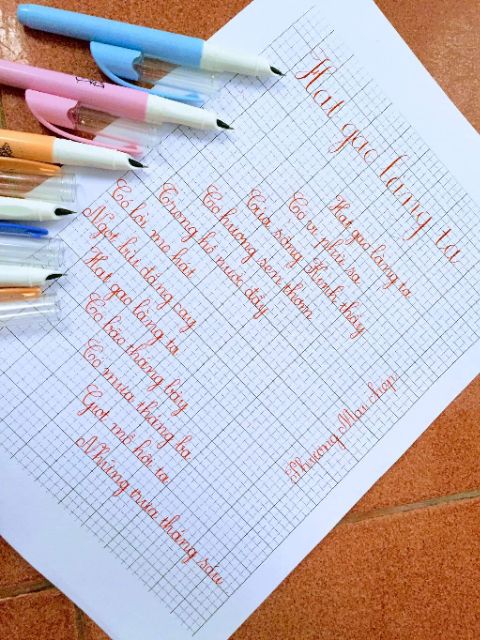 Hạt gạo làng ta
Hạt gạo làng ta
Có vị phù sa
Của sông Kinh thầy
Có hương sen thơm
Trong hồ nước đầy
Có lời mẹ hát
Ngọt bùi đắng cay
Hạt gạo làng ta
Có bão tháng bảy
Có mưa tháng ba
Giọt mồ hôi sa
Những trưa tháng sáu
Phương Mai chép